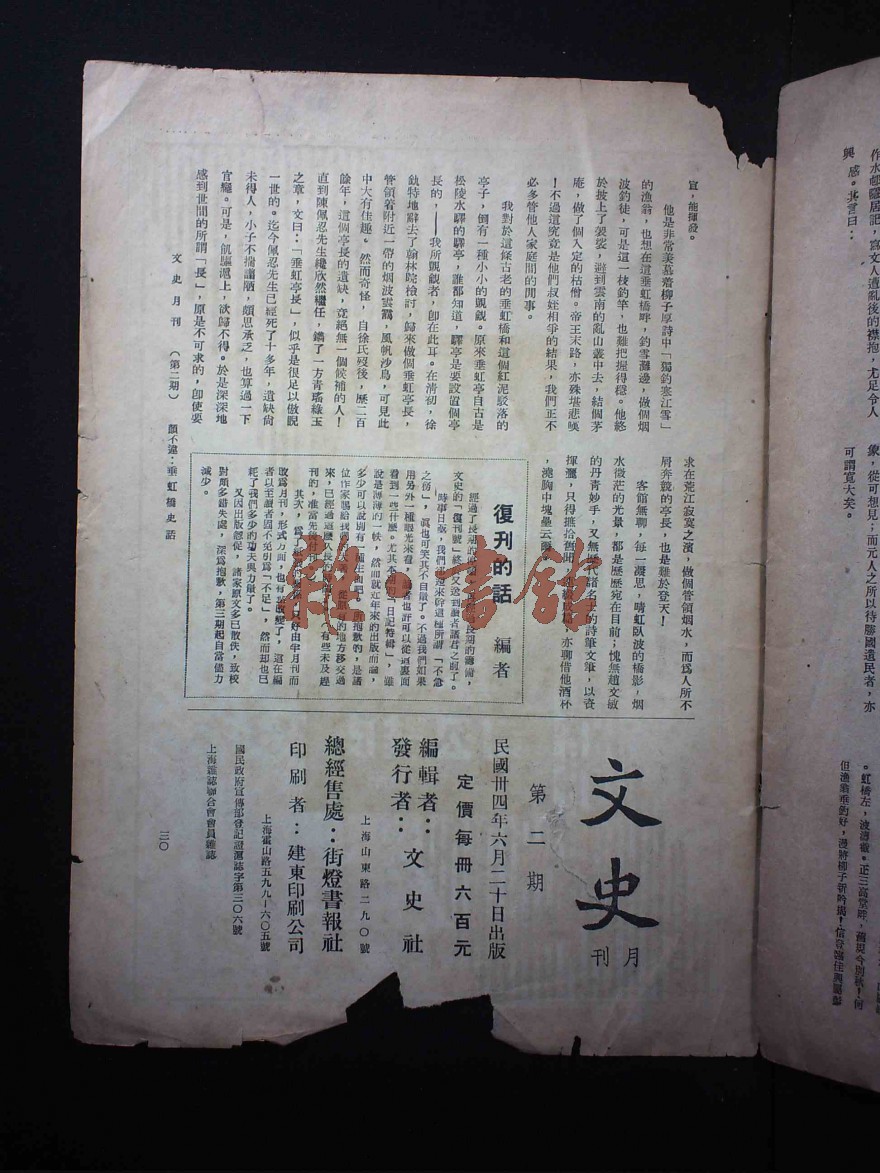 作水邨隱居記，寫文人遭亂後的襟抱，尤足令人
興感。其言曰：
象，從可想見；而元人之所以待勝國遺民者，亦
可謂寬大矣。
宣，能揮發。
他是非常羨慕着柳子厚詩中「獨釣寒江雪」
的漁翁，也想在這垂虹橋畔，釣雪灘邊，做個烟
波釣徒，可是這一枝釣竿，也難把握得穩。他終
於披上了袈裟，避到雲南的亂山叢中去，結個茅
庵，做了個入定的枯僧。帝王末路，亦殊堪悲嘆
！不過這究竟是他們叔姪相爭的結果，我們正不
必多管他人家庭間的閒事。
我對於這條古老的垂虹橋和這個紅泥駁落的
亭子，倒有一種小小的覬覦。原來垂虹亭自古是
松陵水驛的驛亭，誰都知道，驛亭是要設置個亭
長的，——我所覬覦者，卽在此耳。在淸初，徐
釚特地辭去了翰林院檢討，歸來做個垂虹亭長，
管領着附近一帶的烟波雲靄，風帆沙鳥，可見此
中大有佳趣。然而奇怪，自徐氏歿後，歷二百
餘年，這個亭長的遺缺，竟絕無一個候補的人！
直到陳佩忍先生纔欣然繼任，鐫了一方靑瑤綠玉
之章，文曰：「垂虹亭長」，似乎是很足以傲睨
一世的。迄今佩忍先生已經死了十多年，遺缺尙
未得人，小子不揣譾陋，頗思承乏，也算過一下
官癮。可是，飢驅滬上，欲歸不得。於是深深地
感到世間的所謂「長」，原是不可求的，卽使要
求在荒江寂寞之濱，做個管領烟水，而爲人所不
屑奔競的亭長，也是難於登天！
客館無聊，每一凝思，晴虹臥波的橋影，烟
水微茫的光景，都是歷歷宛在目前；愧無趙文敏
的丹靑妙手，又無歷代諸名士的詩筆文筆，以資
揮灑，只得摭拾舊聞，
亦聊借他酒杯
，澆胸中塊壘云爾。
復刊的話
編者
經過了長期的
長期的籌備，
文史的「復刊號」終於又送到讀者諸君之前了。
時事日亟，我們却還來幹這種所謂「不急
之務」，眞也可笑其不自量了。不過我們如果
用另外一種眼光來看，讀者也許可以從這裏面
看到一些什麼。尤其本期的「日記特輯」，雖
說是薄薄的一帙，然而就近年來的出版而論，
多少可以說別有
所抱歉的，是諸
位作家賜給我們
的地方移交過
來，已經過這麼久長的
有些未及趕
刊的，准當先
其次，爲了
只好由半月刊而
改爲月刊，形式方面，也有
了，這在編
者以至讀者固不免引爲「不足」，然而却也已
耗了我們多少的功夫與力量了。
又因出版怱促，諸家原文多已散佚，致校
對頗多錯失處，深爲抱歉，第三期起自當儘力
減少。
文史
月刊
第二期
民國卅四年六月二十日出版
定價每冊六百元
編輯者：
發行者：
文史社
上海山東路二九〇號
總經售處：街燈書報社
印刷者：建東印刷公司
上海霍山路五九九—六〇五號
國民政府宣傳部登記證滬誌字第三〇六號
上海雜誌聯合會會員雜誌
文史月刊　（第二期）　顏不違：垂虹橋史話
三〇
雜·書館